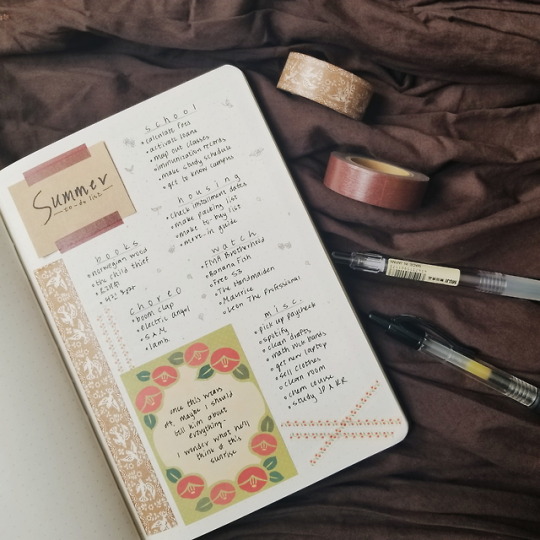 Summer
to-do list
school
• calculate fees
• activate loans
• map out classes
• immunization records
• make study schedule
• get to know campus
housing
• check installment dates
• make packing list
• make to-buy list
• move-in guide
books
• norwegian wood
• the child thief
watch
• FMA Brotherhood
• Banana Fish
• Free S3
• The Handmaiden
• Maurice
• Leon The Professional
choreo
• boom clap
• electric angel
• lamb
misc.
• pick up paycheck
• spotify
• clean drafts
• math work books
• get new laptop
• sell clothes
• clean room
• chem course
• study JP & KR
once this wears
off, maybe I should
tell him about
everything.
I wonder what he'll
think of this
sunrise
MUJI